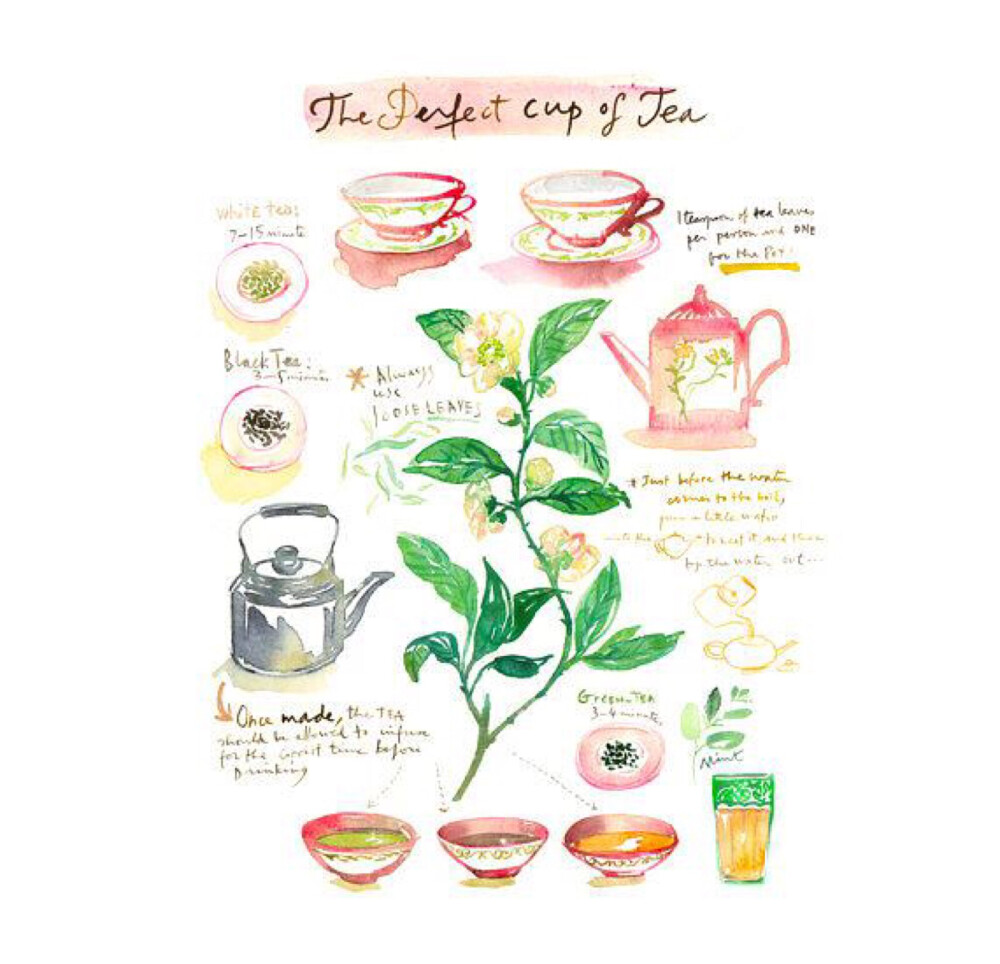 The Perfect cup of Tea
white tea:
7-15 minute
1 teaspoon of tea leaves
per person and ONE
for the Pot!
Black Tea:
3-5 minutes
* Always
use
LOOSE LEAVES
* Just before the water
comes to the boil,
pour a little water
to the
to heat it, and then
the water out...
Once made, the TEA
should be allowed to infuse
for the time before
Drinking
Green TEA
3-4 minutes
Mint